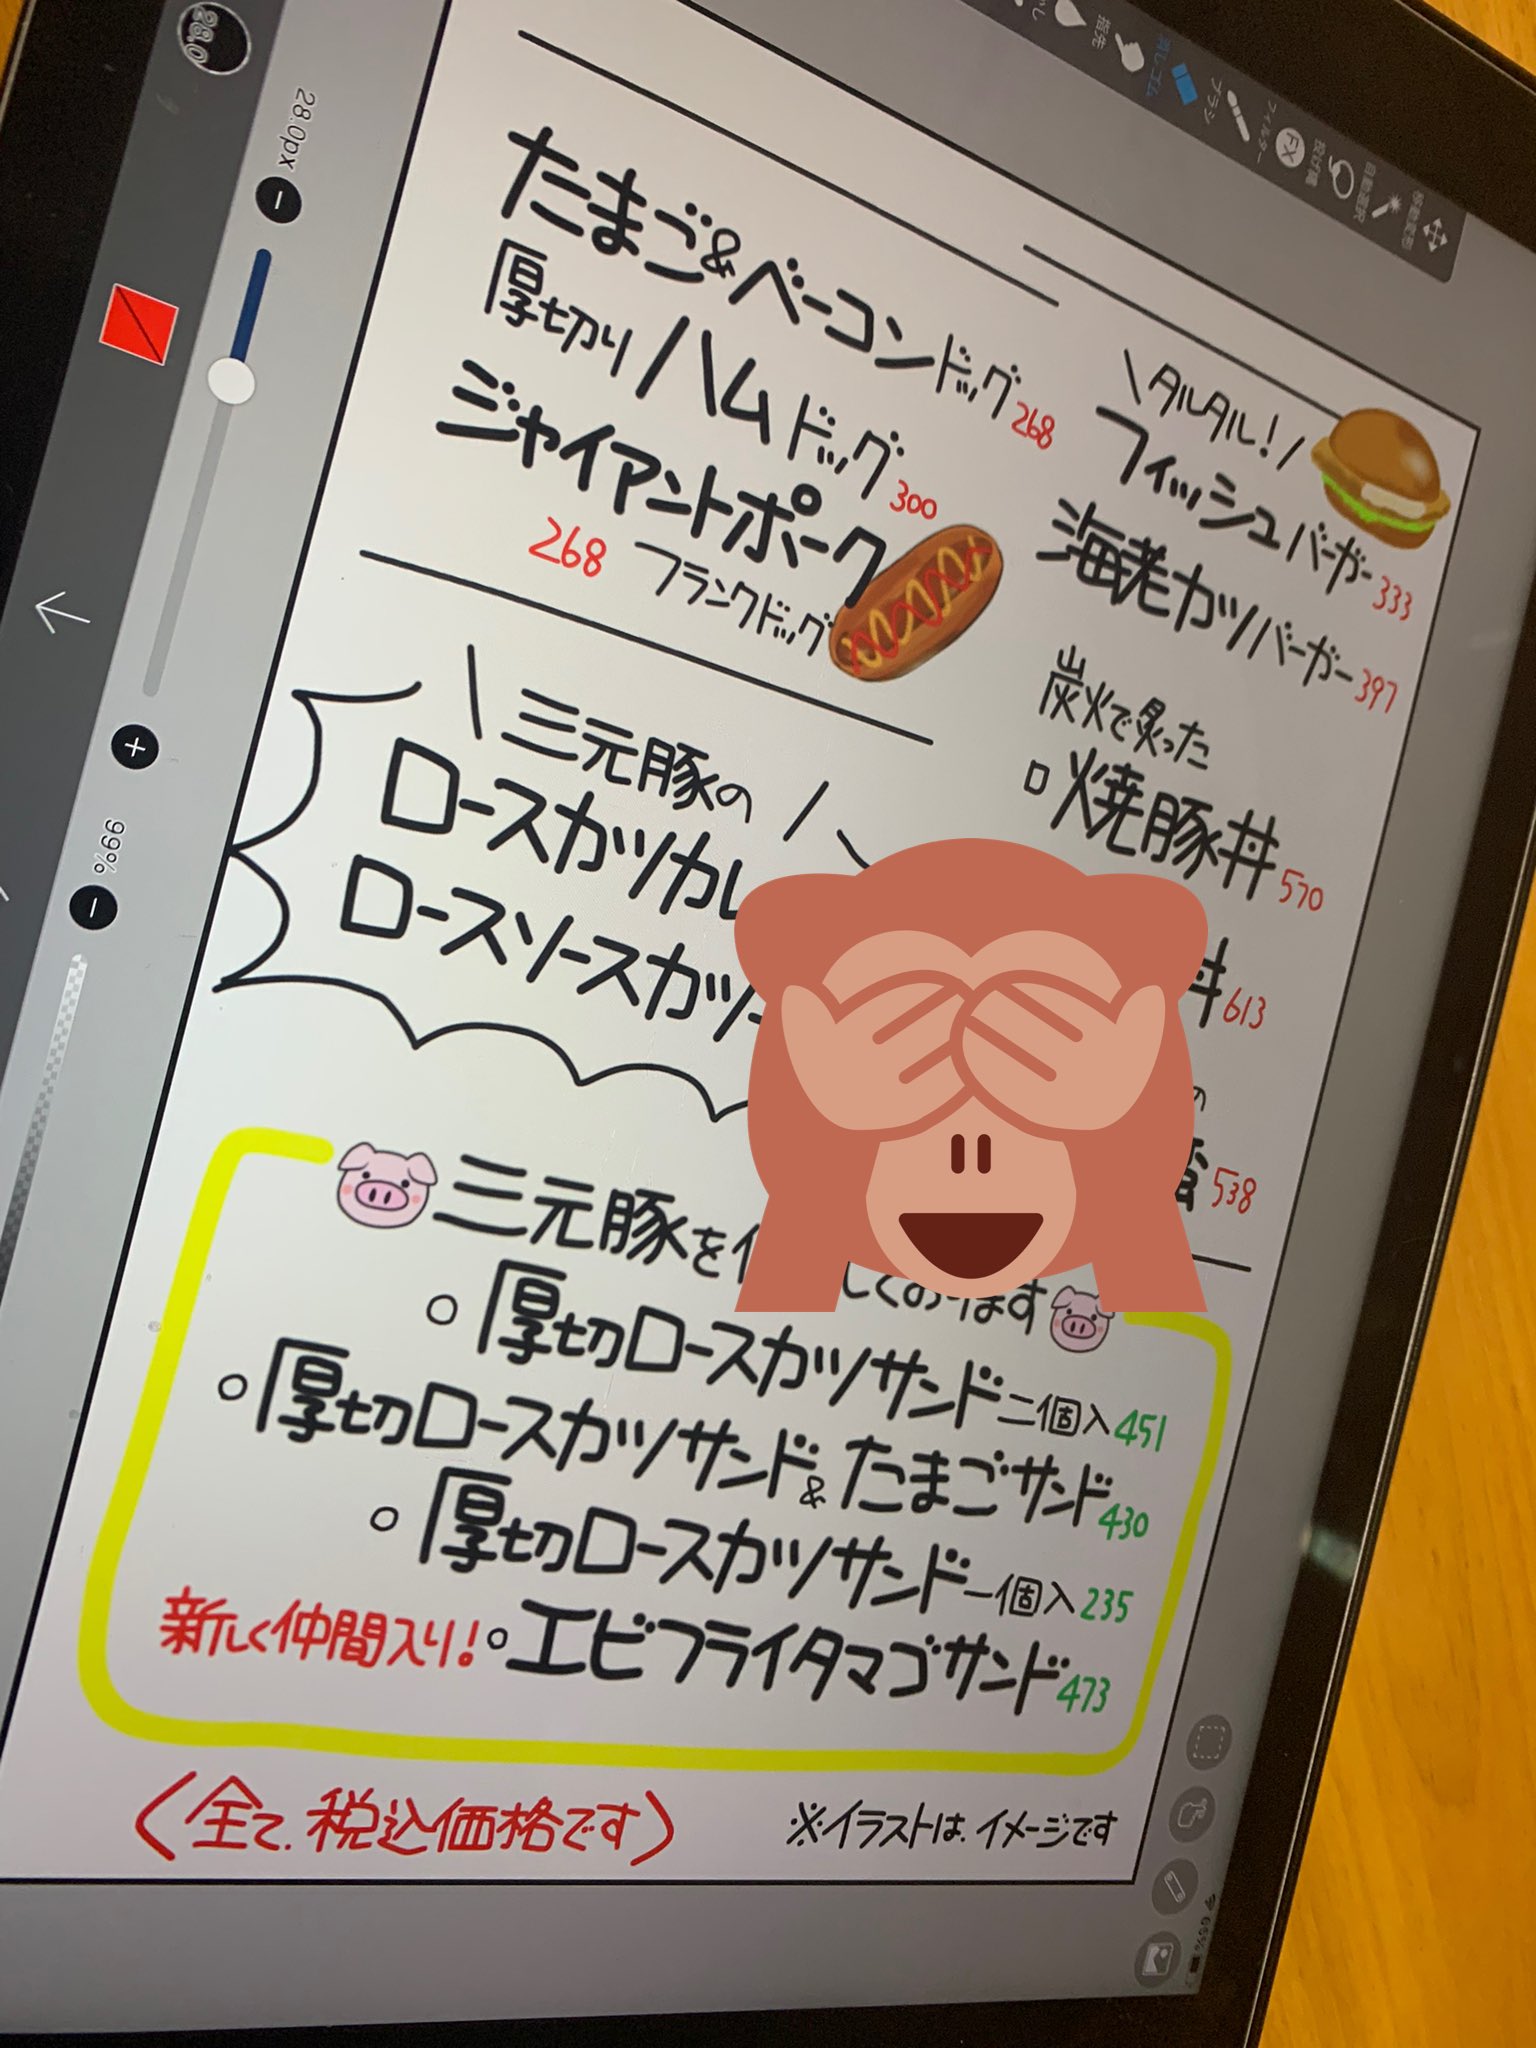 たまご&ベーコンドッグ268
厚切りハムドッグ300
ジャイアントポーク
268 フランクドッグ
\タルタル!/
フィッシュバーガー333
海老カツバーガー397
炭火で炙った
焼豚丼570
丼613
の
538
\三元豚の/
ロースカツカレ
ロースソースカツ
三元豚を
しております
○厚切ロースカツサンド二個入451
○厚切ロースカツサンド&たまごサンド430
○厚切ロースカツサンド一個入235
新しく仲間入り!○エビフライタマゴサンド473
(全て、税込価格です)
※イラストは、イメージです
28.0
28.0px
99%
指先
消しゴム
ブラシ
フィルター
FX
投げ縄
自動選択
移動変形